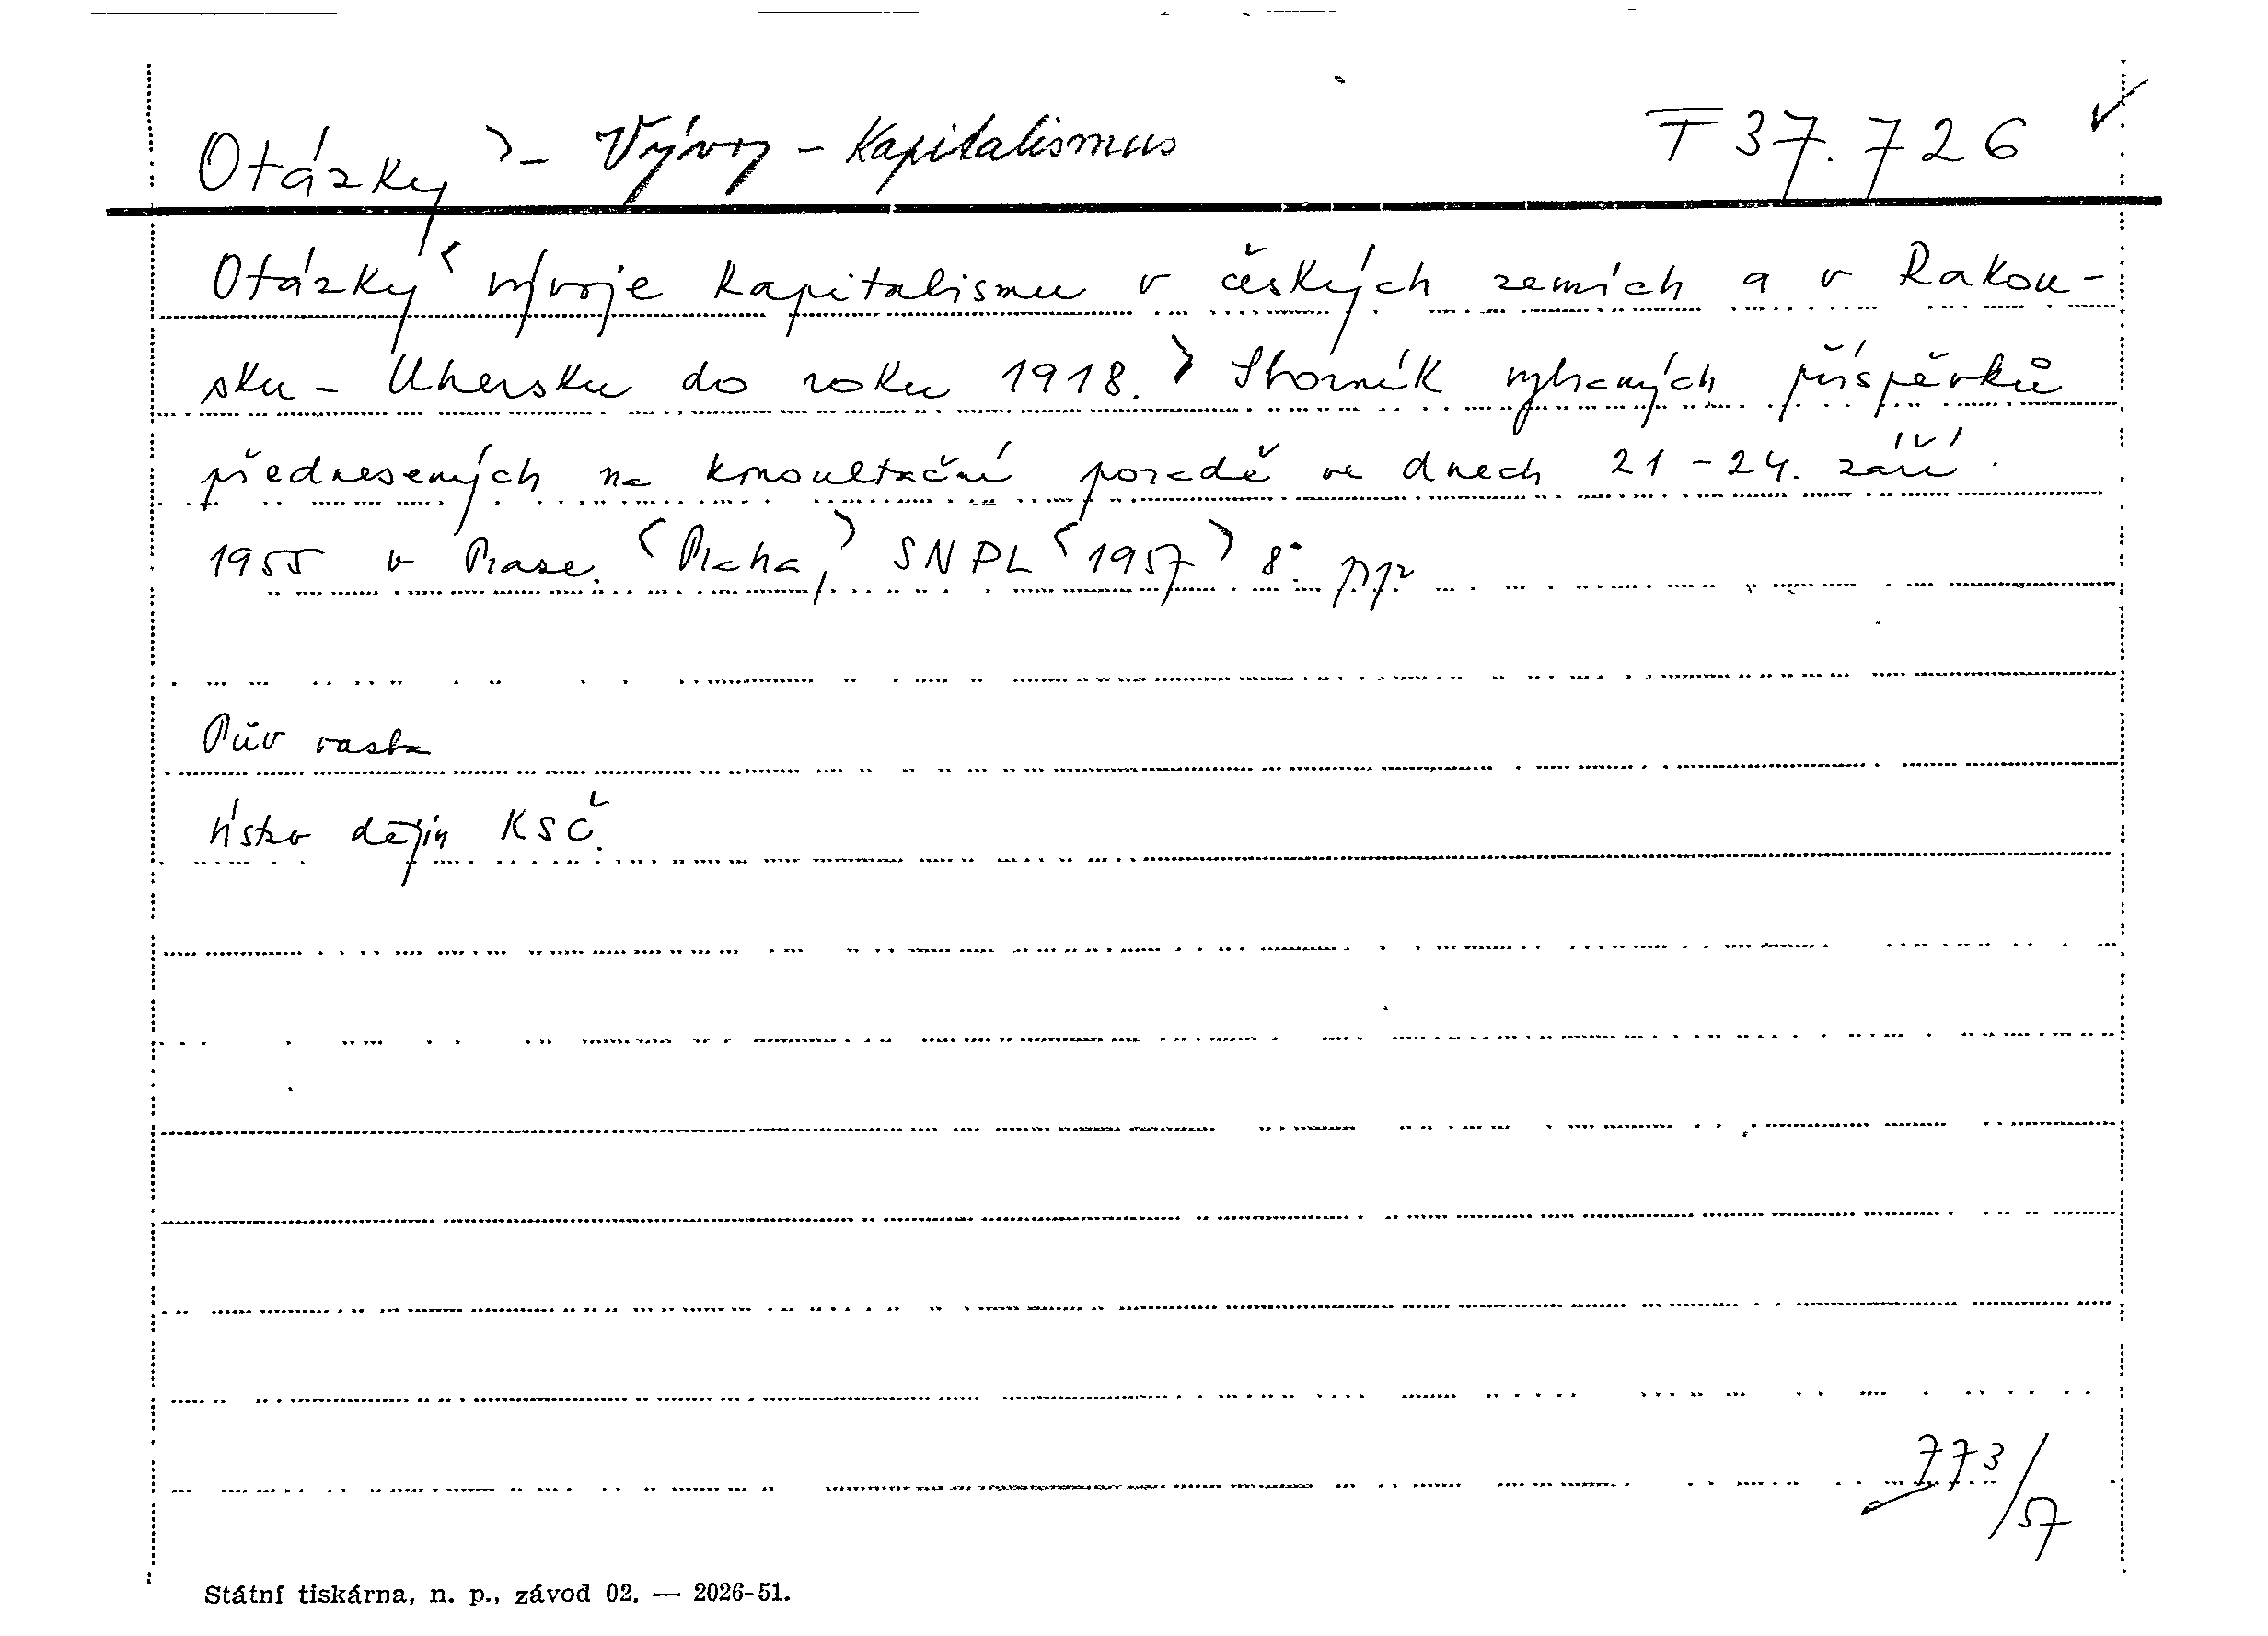 Otázky > - Vývoj - Kapitalismus T 37.726 ✓
Otázky < vývoje kapitalismu v českých zemích a v Rakou-
sku - Uhersku do roku 1918. > Sborník vybraných příspěvků
přednesených na konsultační poradě ve dnech 21 - 24. září
1955 v Praze. < Praha, > SNPL < 1957 > 8°.
Pův vazba
dějin KSČ.
773/57
Státní tiskárna, n. p., závod 02. — 2026-51.